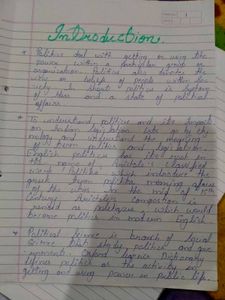 Introduction.
* Politics deal with getting or using the
power within a particular group or
organisation. Politics also involve the
or beliefs of people within
society. In short politics is system
of and a state of political
affairs.
* To understand politics and its impacts
on Indian legislation, lets go by the
and understand the meaning
of term politics and legislation.
English politics has its root in
the name of Aristotle's classified
work Politika which introduce the
greek term politika meaning affairs
of the cities. In the mid of 15th
century Aristotle's composition is
as which would
become politics in modern English.
* Political Science is branch of Social
Science that study political and gov
ernments. Oxford Dictionary
defines politics as the activity in
getting and using power in public life.